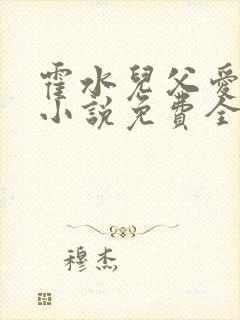 霍水兒父愛
小說免費全
穆杰